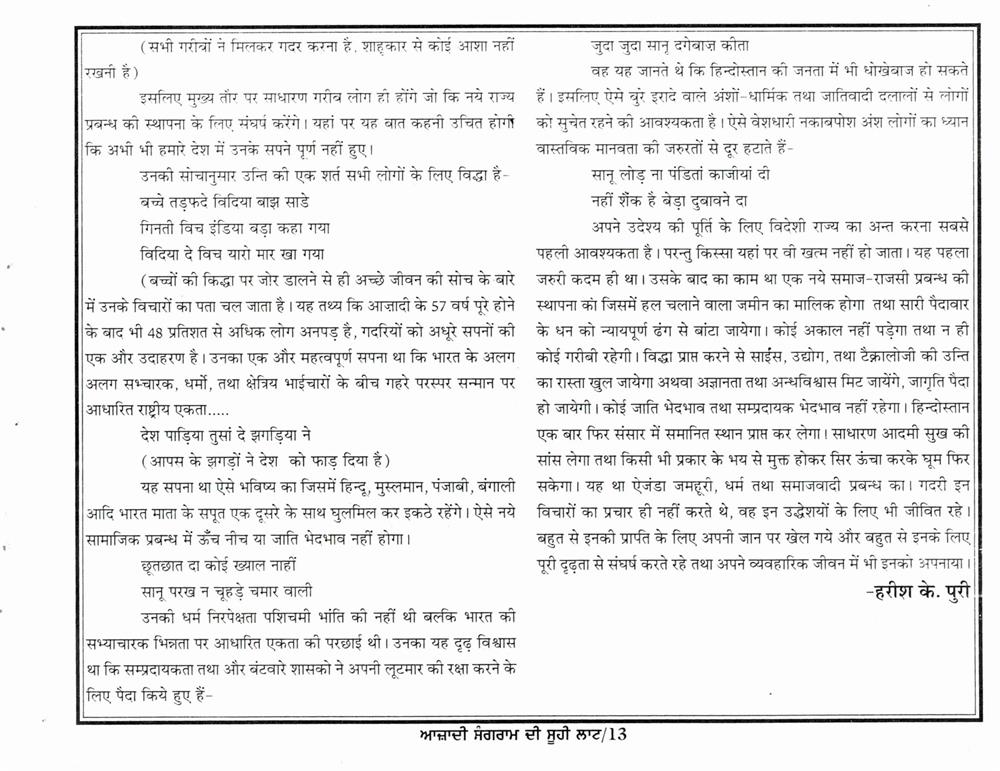 (सभी गरीबों ने मिलकर गदर करना है, शाहकार से कोई आशा नहीं
रखनी है)
इसलिए मुख्य तौर पर साधारण गरीब लोग ही होंगे जो कि नये राज्य
प्रबन्ध की स्थापना के लिए संघर्ष करेंगे। यहां पर यह बात कहनी उचित होगी
कि अभी भी हमारे देश में उनके सपने पूर्ण नहीं हुए।
उनकी सोचानुसार उन्ति की एक शर्त सभी लोगों के लिए विद्धा है-
बच्चे तड़फदे विदिया बाझ साडे
गिनती विच इंडिया बड़ा कहा गया
विदिया दे विच यारो मार खा गया
(बच्चों की किद्धा पर जोर डालने से ही अच्छे जीवन की सोच के बारे
में उनके विचारों का पता चल जाता है। यह तथ्य कि आज़ादी के 57 वर्ष पूरे होने
के बाद भी 48 प्रतिशत से अधिक लोग अनपड़ है, गदरियों को अधूरे सपनों की
एक और उदाहरण है। उनका एक और महत्वपूर्ण सपना था कि भारत के अलग
अलग सभ्चारक, धर्मो, तथा क्षेत्रिय भाईचारों के बीच गहरे परस्पर सन्मान पर
आधारित राष्ट्रीय एकता.....
देश पाड़िया तुसां दे झगड़िया ने
(आपस के झगड़ों ने देश को फाड़ दिया है)
यह सपना था ऐसे भविष्य का जिसमें हिन्दू, मुस्लमान, पंजाबी, बंगाली
आदि भारत माता के सपूत एक दूसरे के साथ घुलमिल कर इकठे रहेंगे। ऐसे नये
सामाजिक प्रबन्ध में ऊँच नीच या जाति भेदभाव नहीं होगा।
छूतछात दा कोई ख्याल नाहीं
सानू परख न चूहड़े चमार वाली
उनकी धर्म निरपेक्षता पशिचमी भांति की नहीं थी बलकि भारत की
सभ्याचारक भिन्नता पर आधारित एकता की परछाई थी। उनका यह दृढ़ विश्वास
था कि सम्प्रदायकता तथा और बंटवारे शासको ने अपनी लूटमार की रक्षा करने के
लिए पैदा किये हुए हैं-
जुदा जुदा सानू दगेबाज़ कीता
वह यह जानते थे कि हिन्दोस्तान की जनता में भी धोखेबाज हो सकते
हैं। इसलिए ऐसे बुरे इरादे वाले अंशों-धार्मिक तथा जातिवादी दलालों से लोगों
को सुचेत रहने की आवश्यकता है। ऐसे वेशधारी नकाबपोश अंश लोगों का ध्यान
वास्तविक मानवता की जरुरतों से दूर हटाते हैं-
सानू लोड़ ना पंडितां काजीयां दी
नहीं शैंक है बेड़ा दुबावने दा
अपने उदेश्य की पूर्ति के लिए विदेशी राज्य का अन्त करना सबसे
पहली आवश्यकता है। परन्तु किस्सा यहां पर वी खत्म नहीं हो जाता। यह पहला
जरुरी कदम ही था। उसके बाद का काम था एक नये समाज-राजसी प्रबन्ध की
स्थापना का जिसमें हल चलाने वाला जमीन का मालिक होगा तथा सारी पैदावार
के धन को न्यायपूर्ण ढंग से बांटा जायेगा। कोई अकाल नहीं पड़ेगा तथा न ही
कोई गरीबी रहेगी। विद्धा प्राप्त करने से साईंस, उद्योग, तथा टैक्नालोजी की उन्ति
का रास्ता खुल जायेगा अथवा अज्ञानता तथा अन्धविश्वास मिट जायेंगे, जागृति पैदा
हो जायेगी। कोई जाति भेदभाव तथा सम्प्रदायक भेदभाव नहीं रहेगा। हिन्दोस्तान
एक बार फिर संसार में समानित स्थान प्राप्त कर लेगा। साधारण आदमी सुख की
सांस लेगा तथा किसी भी प्रकार के भय से मुक्त होकर सिर ऊंचा करके घूम फिर
सकेगा। यह था ऐजंडा जमहूरी, धर्म तथा समाजवादी प्रबन्ध का। गदरी इन
विचारों का प्रचार ही नहीं करते थे, वह इन उद्धेशयों के लिए भी जीवित रहे।
बहुत से इनकी प्रार्पत के लिए अपनी जान पर खेल गये और बहुत से इनके लिए
पूरी दृढ़ता से संघर्ष करते रहे तथा अपने व्यवहारिक जीवन में भी इनको अपनाया।
-हरीश के. पुरी
ਆਜ਼ਾਦੀ ਸੰਗਰਾਮ ਦੀ ਸੂਹੀ ਲਾਟ/13